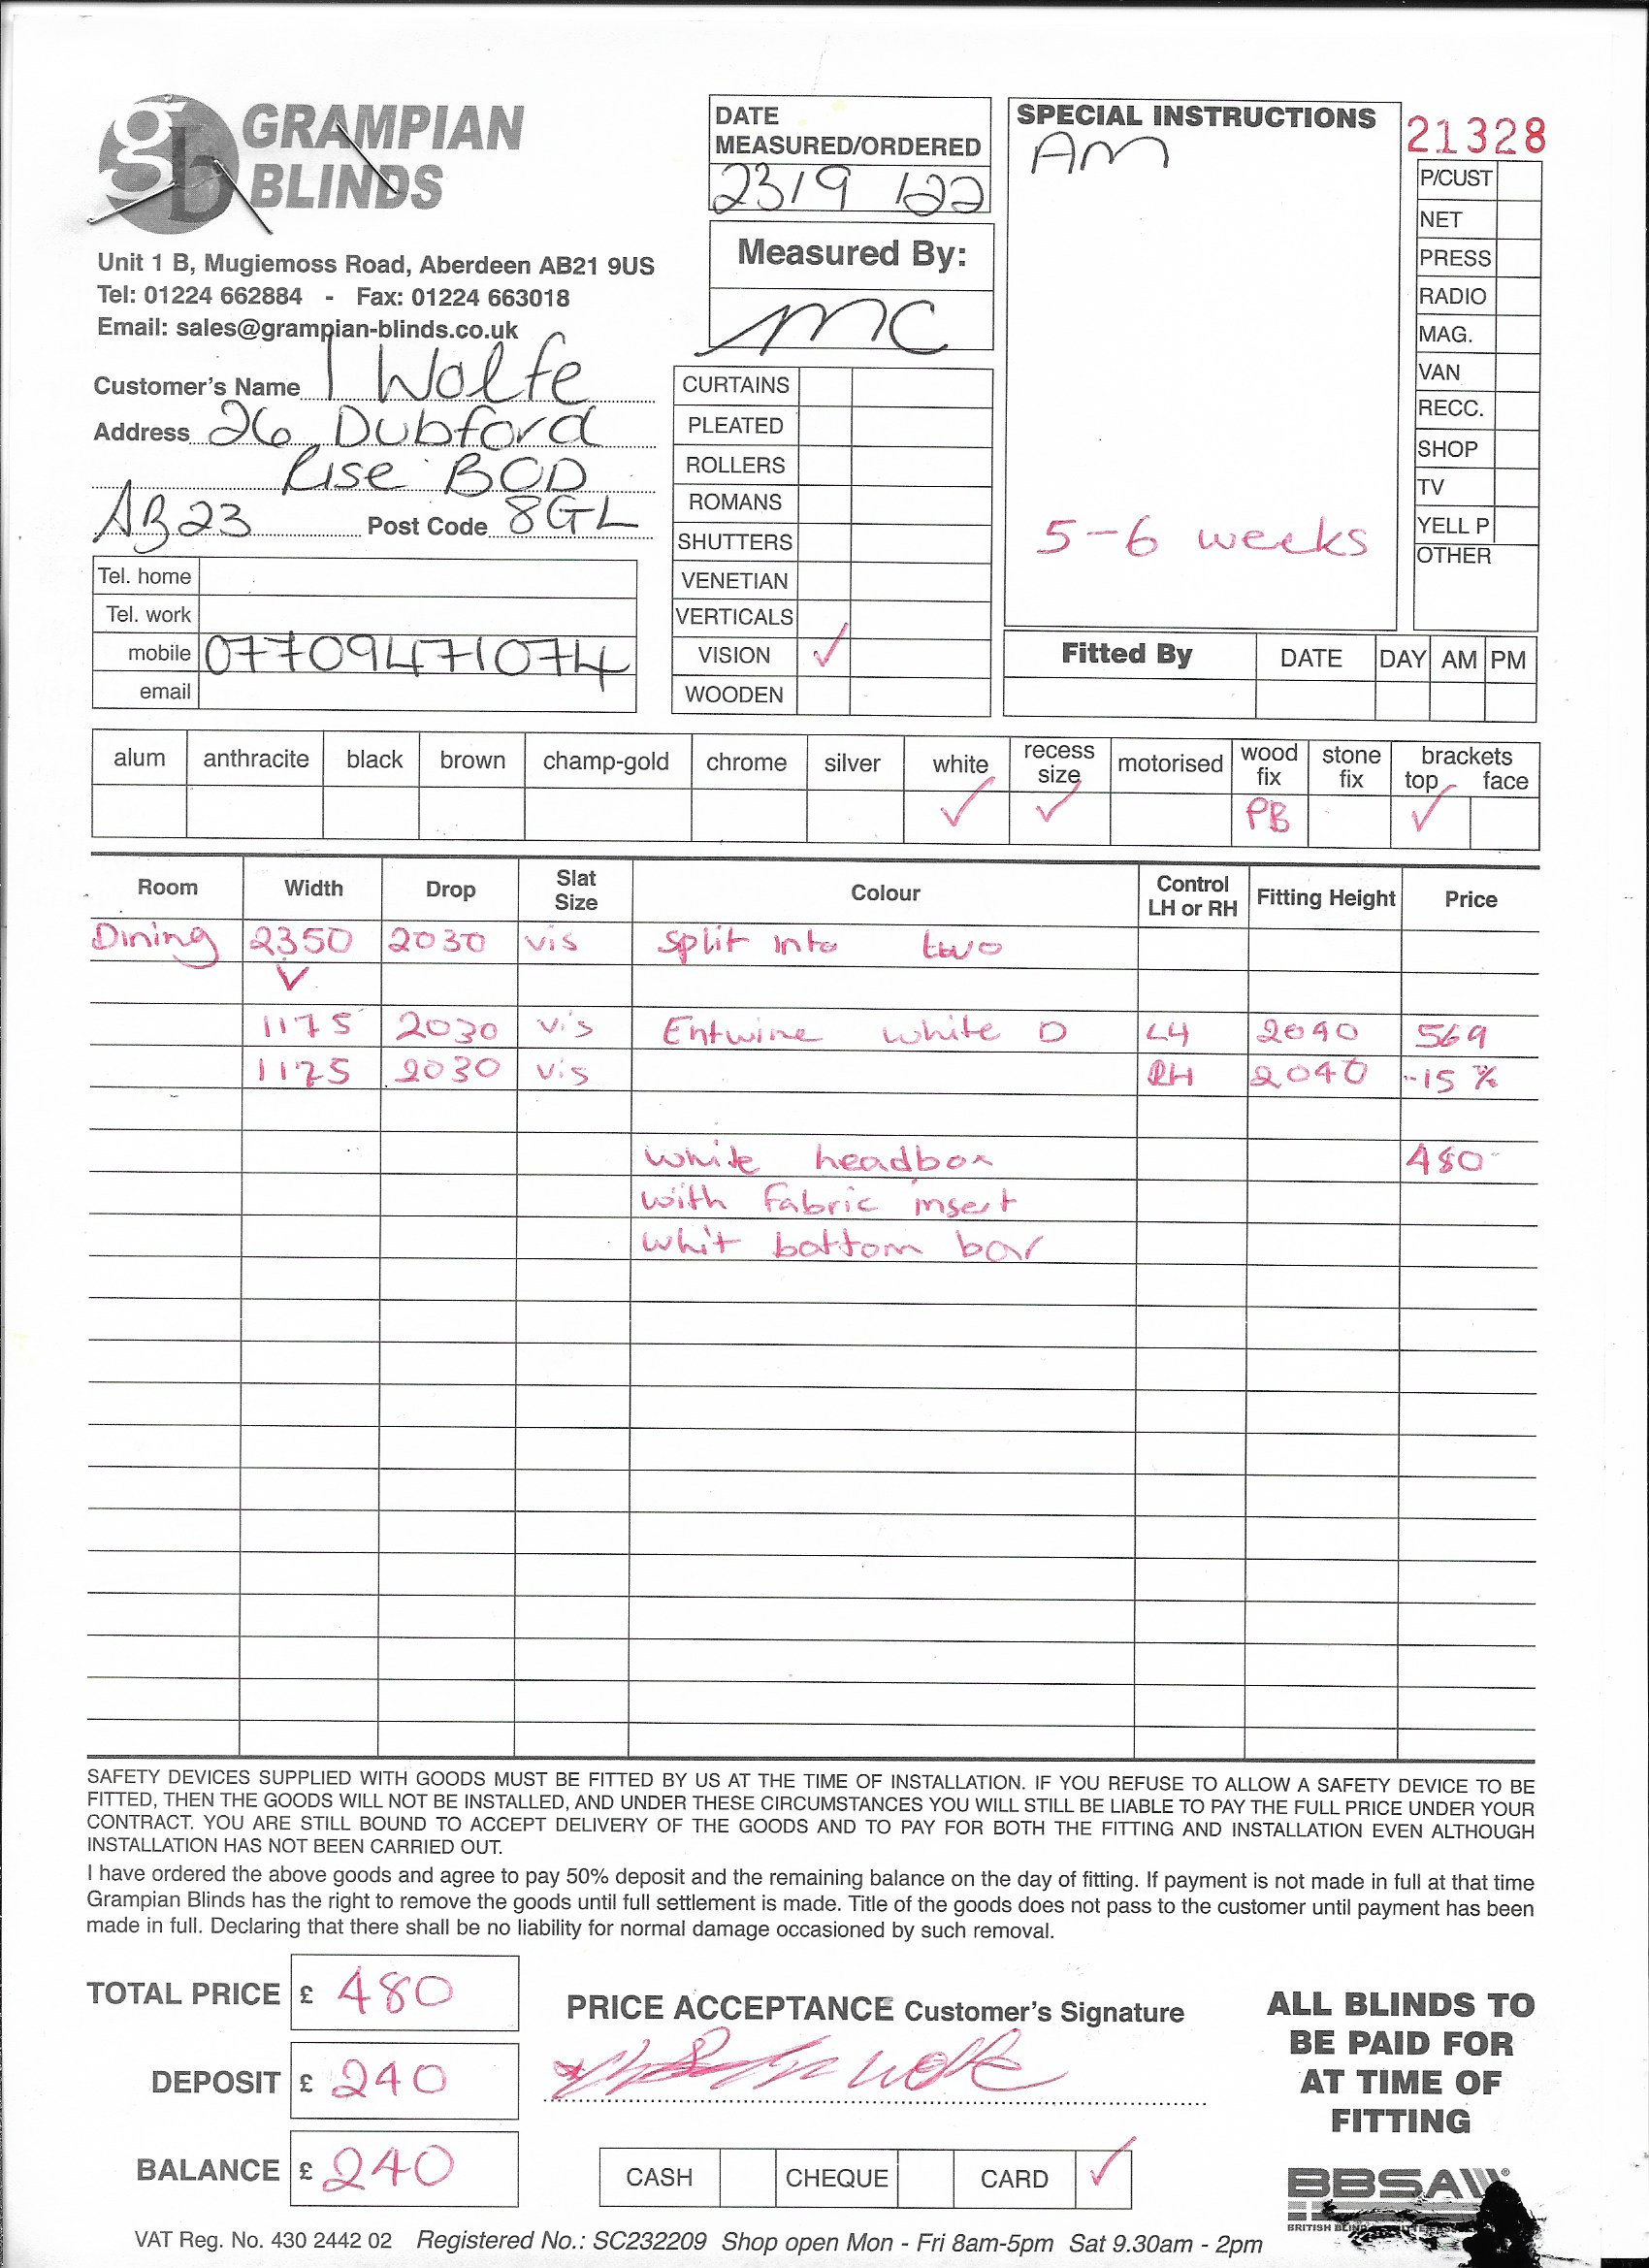 GRAMPIAN
BLINDS
Unit 1 B, Mugiemoss Road, Aberdeen AB21 9US
Tel: 01224 662884 - Fax: 01224 663018
Email: sales@grampian-blinds.co.uk
Customer's Name I Wolfe
Address 26 Dubford
Rise BOD
AB23 Post Code 8GL
Tel. home
Tel. work
mobile 07709471074
email
DATE
MEASURED/ORDERED
23/9/22
Measured By:
MC
CURTAINS
PLEATED
ROLLERS
ROMANS
SHUTTERS
VENETIAN
VERTICALS
VISION ✓
WOODEN
SPECIAL INSTRUCTIONS
AM
5-6 weeks
21328
P/CUST
NET
PRESS
RADIO
MAG.
VAN
RECC.
SHOP
TV
YELL P
OTHER
Fitted By DATE DAY AM PM
alum anthracite black brown champ-gold chrome silver white recess size motorised wood fix stone fix brackets top face
✓ ✓ PB ✓
Room Width Drop Slat Size Colour Control LH or RH Fitting Height Price
Dining 2350 2030 vis split into two
1175 2030 vis Entwine white D LH 2040 569
1175 2030 vis RH 2040 -15%
white headbox 480
with fabric insert
whit bottom bar
SAFETY DEVICES SUPPLIED WITH GOODS MUST BE FITTED BY US AT THE TIME OF INSTALLATION. IF YOU REFUSE TO ALLOW A SAFETY DEVICE TO BE
FITTED, THEN THE GOODS WILL NOT BE INSTALLED, AND UNDER THESE CIRCUMSTANCES YOU WILL STILL BE LIABLE TO PAY THE FULL PRICE UNDER YOUR
CONTRACT. YOU ARE STILL BOUND TO ACCEPT DELIVERY OF THE GOODS AND TO PAY FOR BOTH THE FITTING AND INSTALLATION EVEN ALTHOUGH
INSTALLATION HAS NOT BEEN CARRIED OUT.
I have ordered the above goods and agree to pay 50% deposit and the remaining balance on the day of fitting. If payment is not made in full at that time
Grampian Blinds has the right to remove the goods until full settlement is made. Title of the goods does not pass to the customer until payment has been
made in full. Declaring that there shall be no liability for normal damage occasioned by such removal.
TOTAL PRICE £ 480
DEPOSIT £ 240
BALANCE £ 240
PRICE ACCEPTANCE Customer's Signature
CASH CHEQUE CARD ✓
ALL BLINDS TO
BE PAID FOR
AT TIME OF
FITTING
BBSA
BRITISH
VAT Reg. No. 430 2442 02 Registered No.: SC232209 Shop open Mon - Fri 8am-5pm Sat 9.30am - 2pm